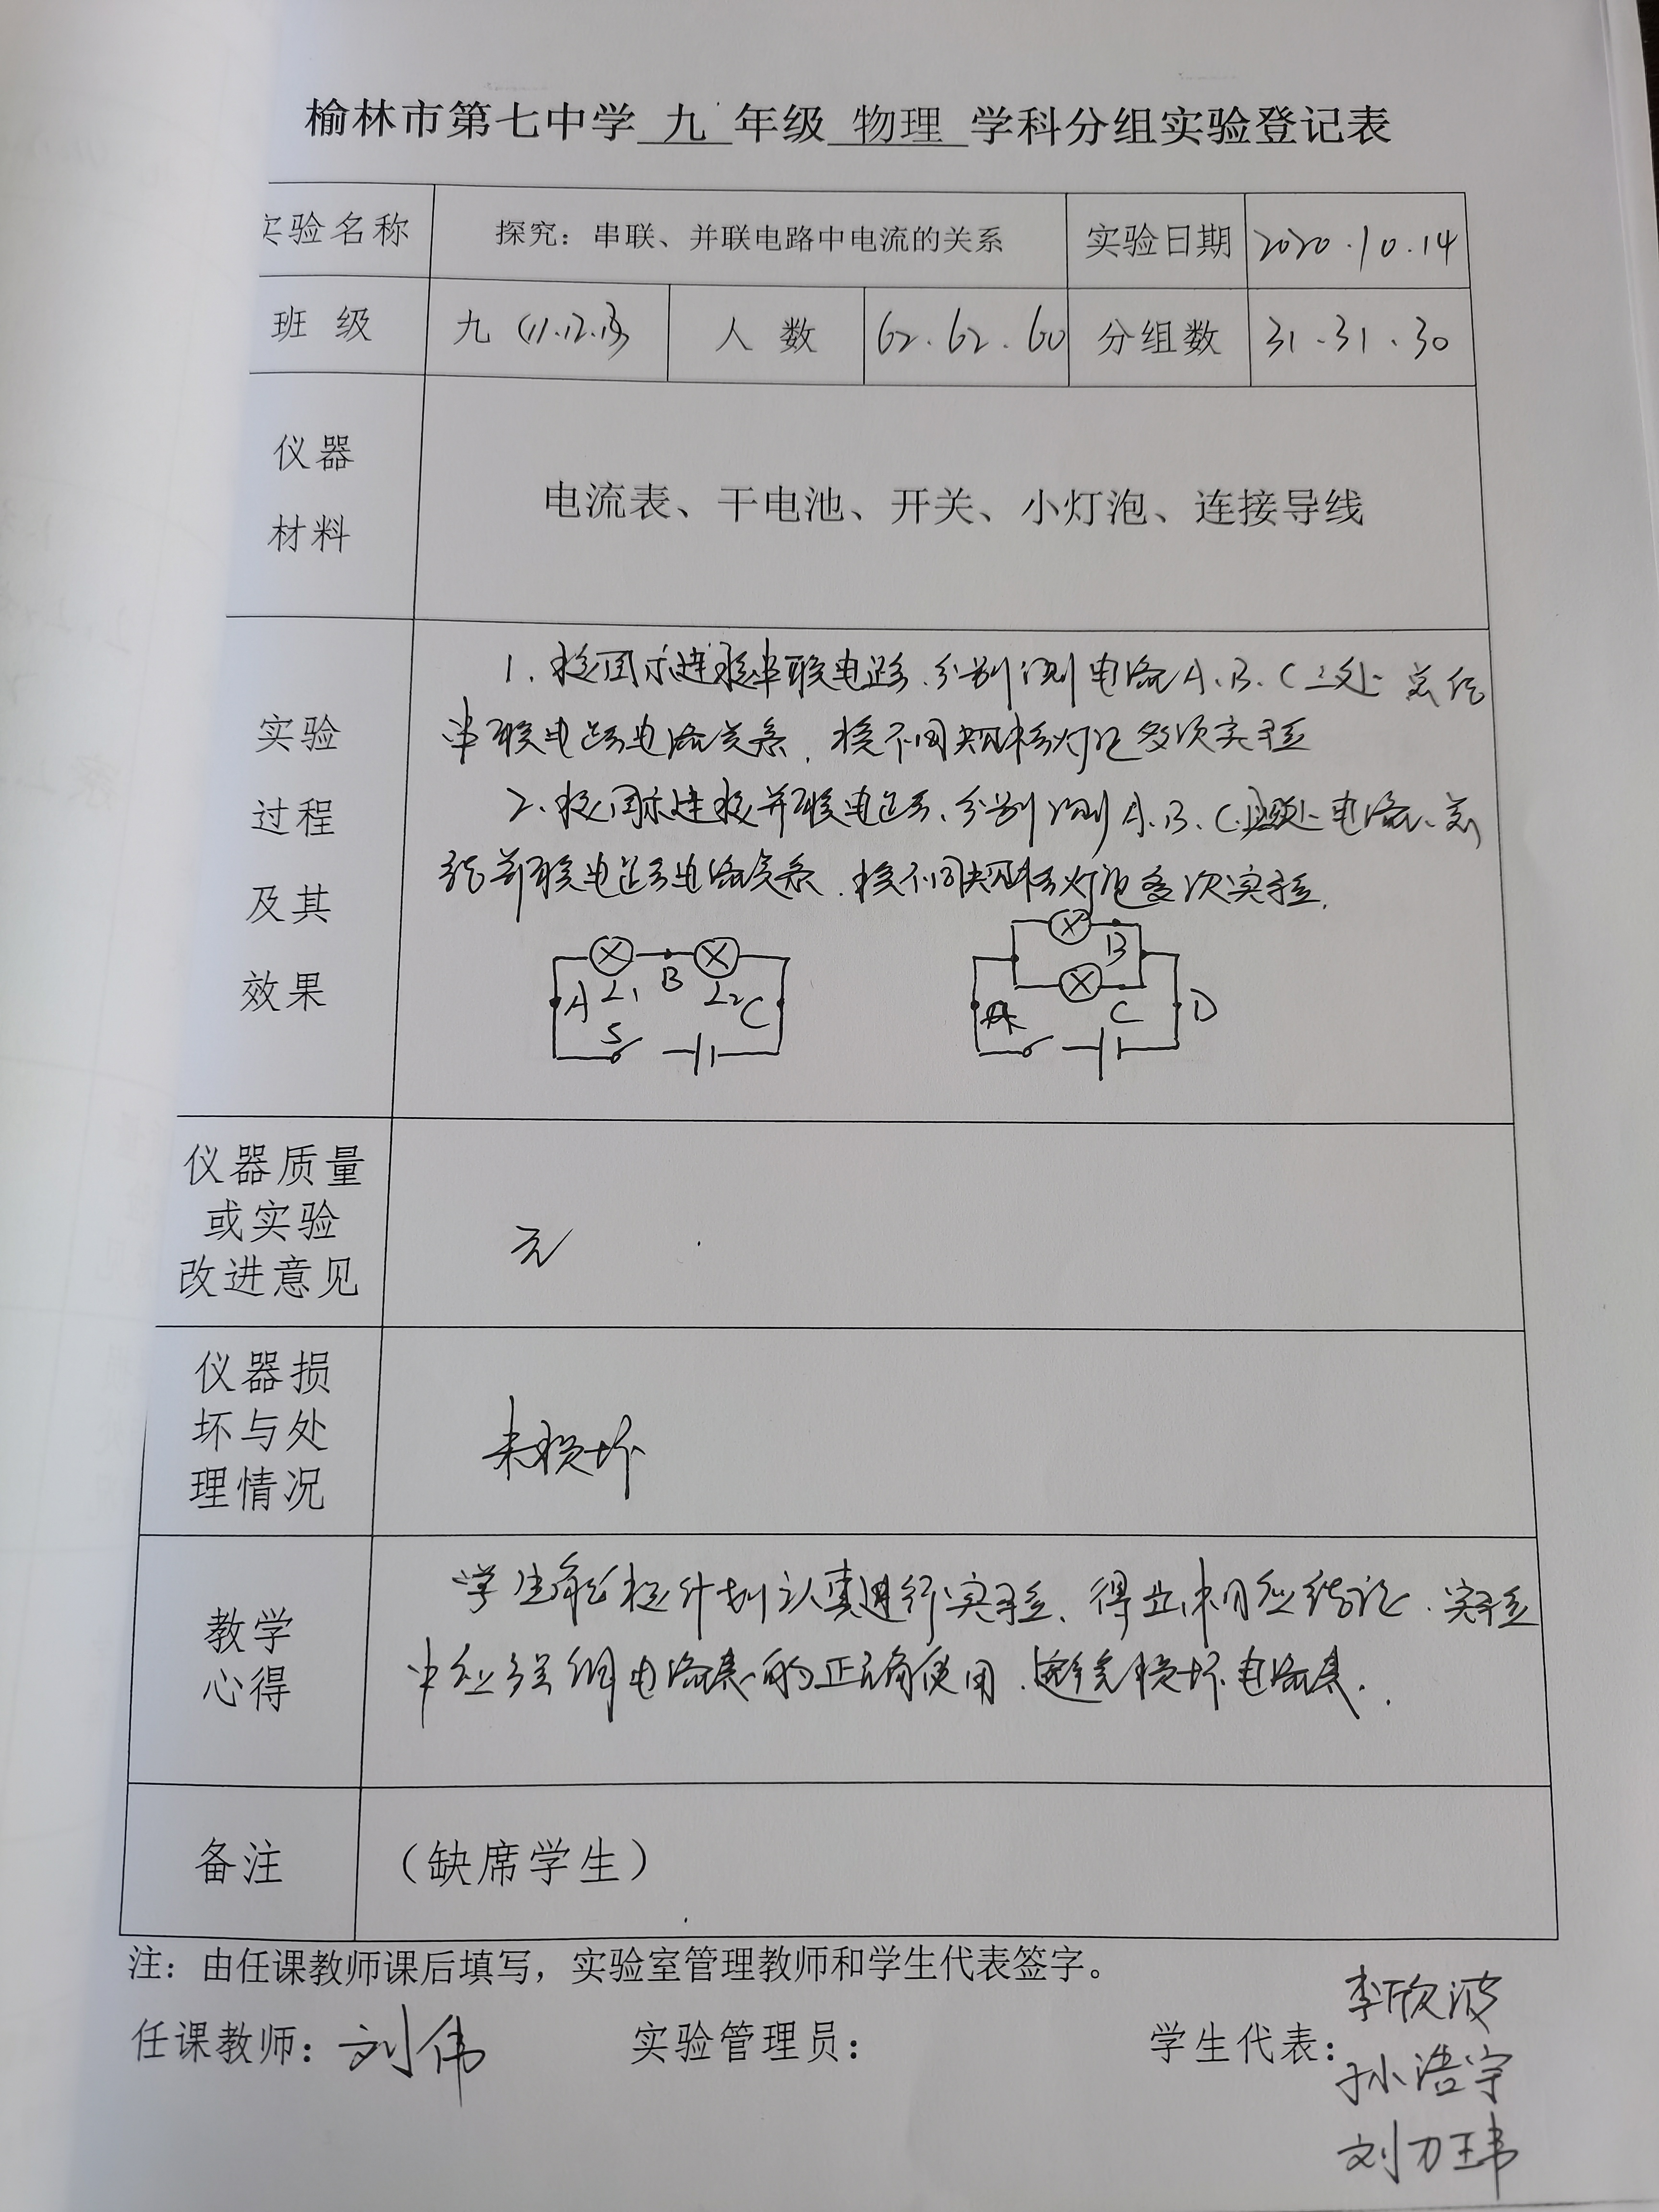 榆林市第七中学 九 年级 物理 学科分组实验登记表
实验名称 探究：串联、并联电路中电流的关系 实验日期 2020.10.14
班 级 九（11.12.13） 人 数 62、62、60 分组数 31、31、30
仪器
材料
电流表、干电池、开关、小灯泡、连接导线
实验
过程
及其
效果
1、按图示连接串联电路、分别测电流A、B、C三处 总结
串联电路电流关系，换不同规格灯泡多次实验
2、按图示连接并联电路、分别测A、B、C处电流、总
结并联电路电流关系，换不同规格灯泡多次实验.
A L₁ B L₂ C S
A B C D
仪器质量
或实验
改进意见
无
仪器损
坏与处
理情况
未损坏
教学
心得
学生能按计划认真进行实验、得出相应结论.实验
中应强调电流表的正确使用.避免损坏电流表.
备注 （缺席学生）
注：由任课教师课后填写，实验室管理教师和学生代表签字。
任课教师：刘伟 实验管理员： 学生代表：李欣波
孙浩宇